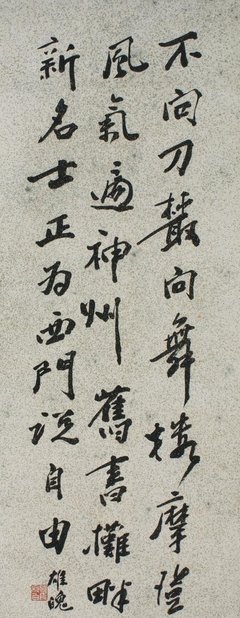 不向刀叢向舞樓摩登
風氣遍神州舊書攤畔
新名士正为西門説自由
雄